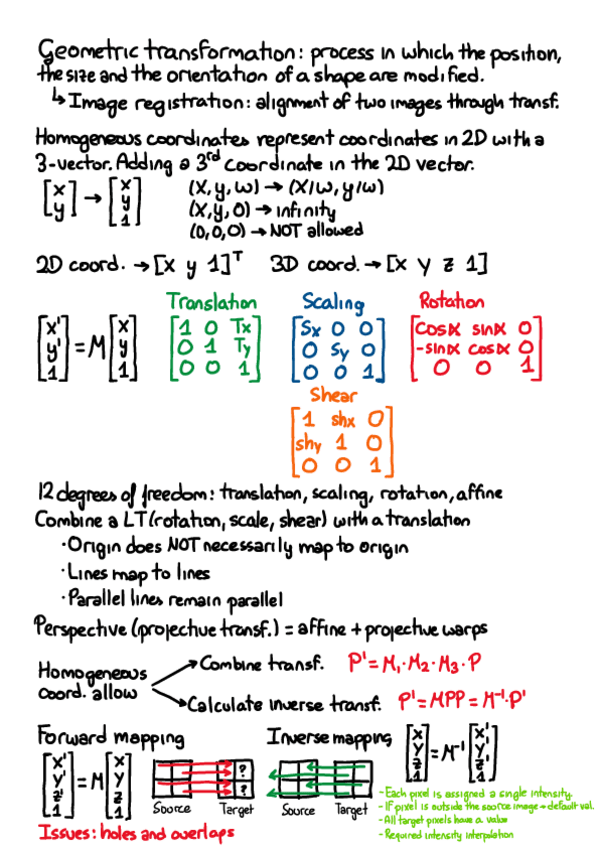 Geometric transformation: process in which the position,
the size and the orientation of a shape are modified.
↳ Image registration: alignment of two images through transf.
Homogeneous coordinates represent coordinates in 2D with a
3-vector. Adding a 3rd coordinate in the 2D vector.
[x y] → [x y 1]
(x, y, w) → (x/w, y/w)
(x, y, 0) → infinity
(0, 0, 0) → NOT allowed
2D coord. → [x y 1]ᵀ 3D coord. → [x y z 1]
Translation Scaling Rotation
[x' y' 1] = M [x y 1]
[1 0 Tx
0 1 Ty
0 0 1]
[Sx 0 0
0 Sy 0
0 0 1]
[cosα sinα 0
-sinα cosα 0
0 0 1]
Shear
[1 shx 0
shy 1 0
0 0 1]
12 degrees of freedom: translation, scaling, rotation, affine
Combine a LT (rotation, scale, shear) with a translation
·Origin does NOT necessarily map to origin
·Lines map to lines
·Parallel lines remain parallel
Perspective (projective transf.) = affine + projective warps
Homogeneous
coord. allow
Combine transf. P' = M₁·M₂·M₃·P
Calculate inverse transf. P' = MPP = M⁻¹·P'
Forward mapping
[x' y' z' 1] = M [x y z 1]
? ?
Source Target
Issues: holes and overlaps
Inverse mapping
[x y z 1] = M⁻¹ [x' y' z' 1]
Source Target
- Each pixel is assigned a single intensity.
- IF pixel is outside the source image → default val.
- All target pixels have a value
- Required intensity interpolation